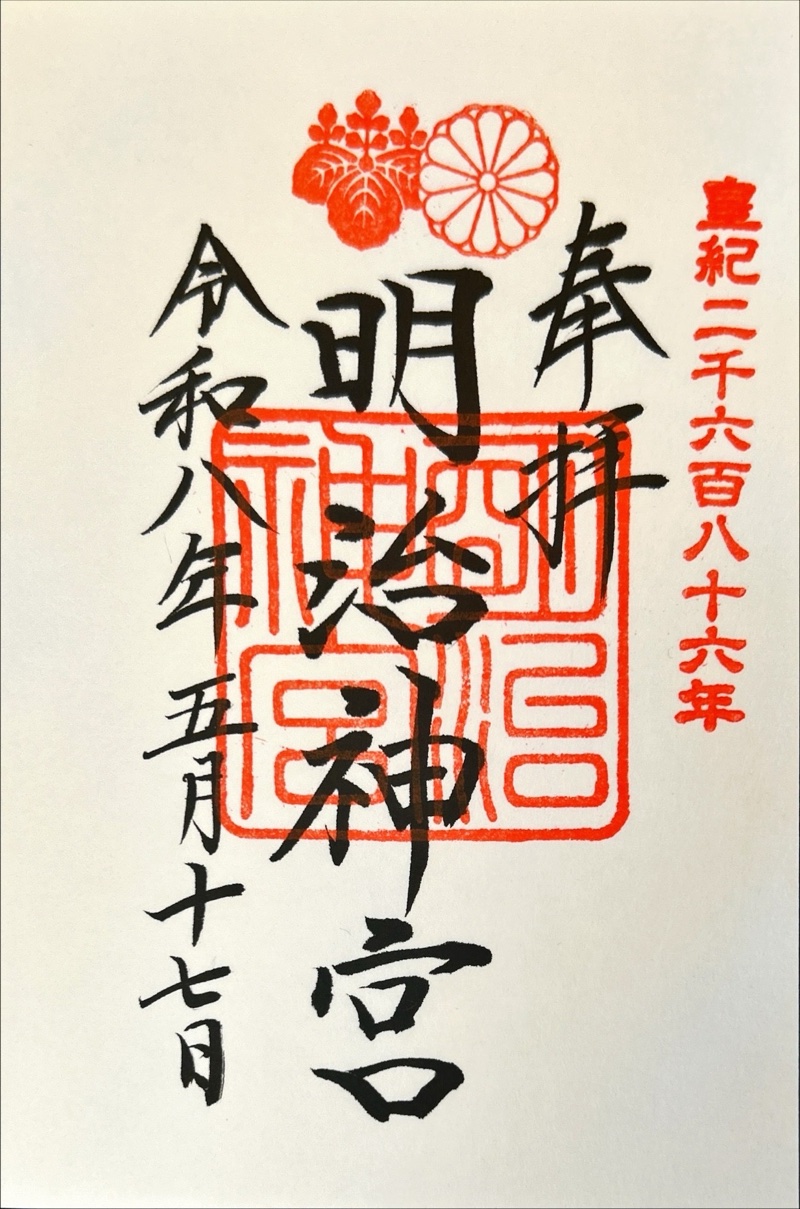 皇紀二千六百八十六年
奉拝
明治神宮
明治神宮
令和八年五月十七日